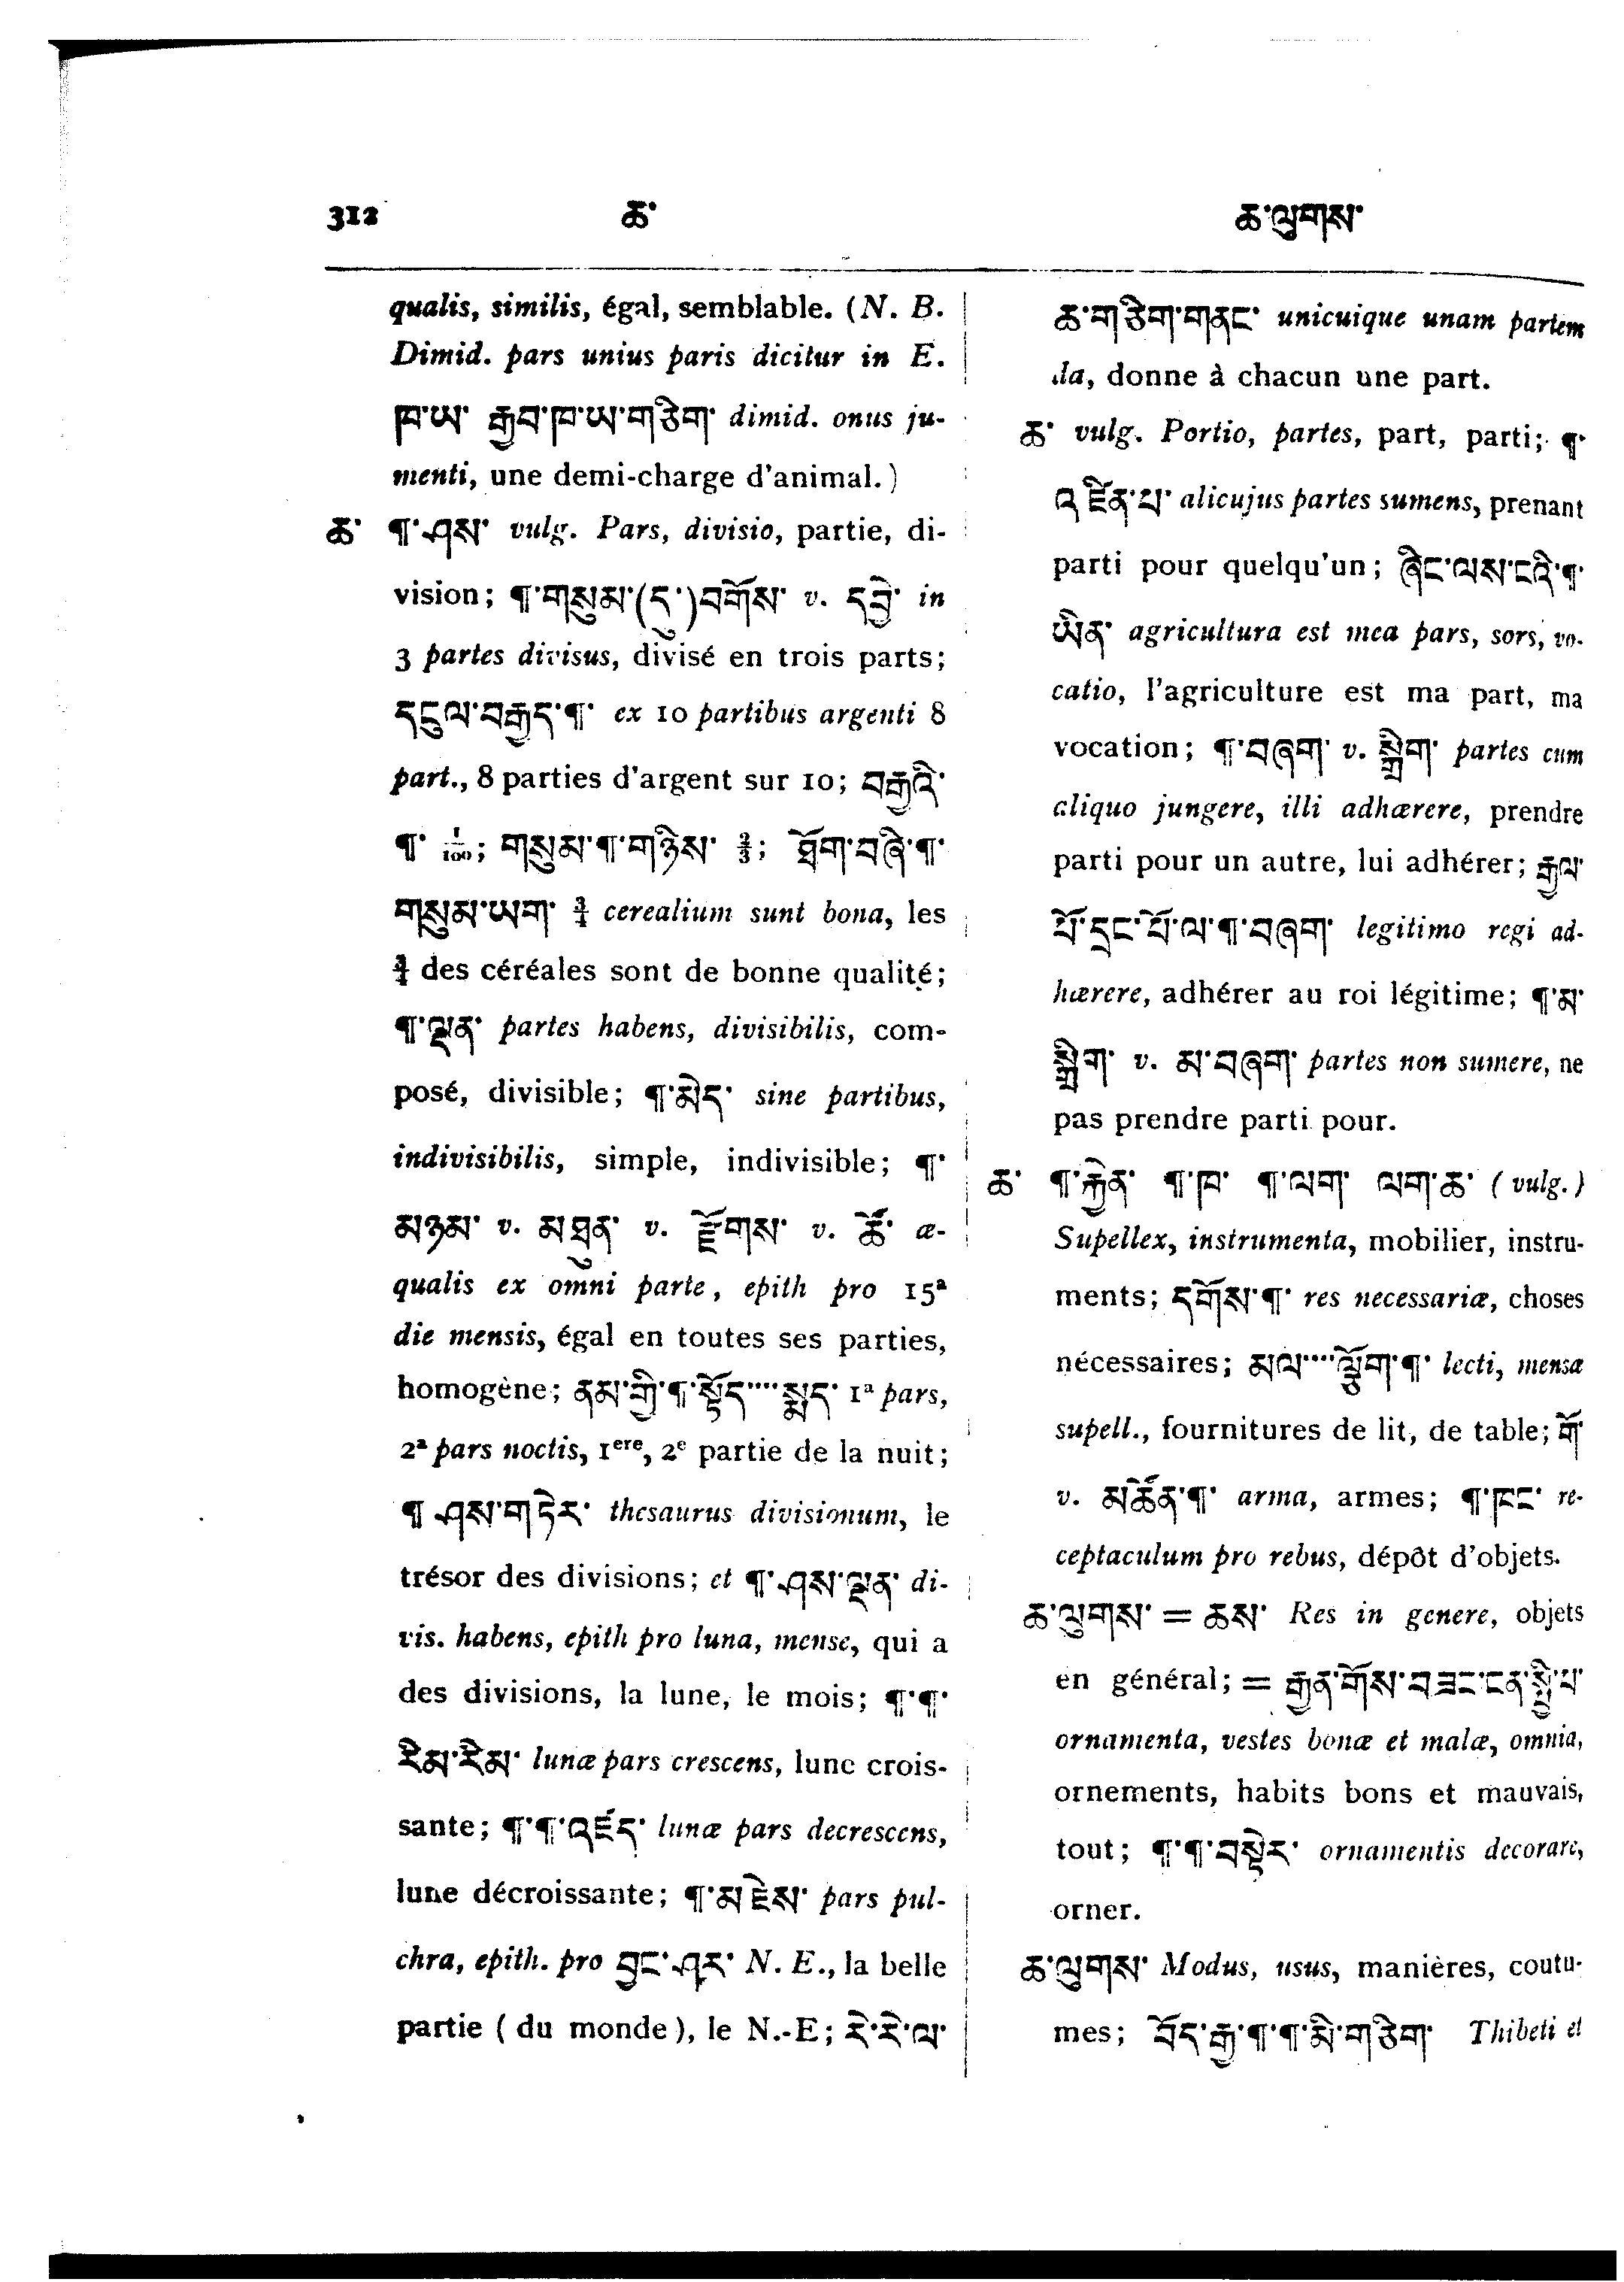 312 ཆ་ ཆ་ལུགས་
qualis, similis, égal, semblable. (N. B.
Dimid. pars unius paris dicitur in E.
ཁ་ཡ་ རྒྱབ་ཁ་ཡ་གཅིག་ dimid. onus ju-
menti, une demi-charge d'animal.)
ཆ་ ¶་ཤས་ vulg. Pars, divisio, partie, di-
vision; ¶་གསུམ་(དུ་)བགོས་ v. དབྱེ་ in
3 partes divisus, divisé en trois parts;
དངུལ་བརྒྱད་¶་ ex 10 partibus argenti 8
part., 8 parties d'argent sur 10; བརྒྱའི་
¶་ 1/100; གསུམ་¶་གཉིས་ 2/3; ཐོག་བཞི་¶་
གསུམ་ཡག་ 3/4 cerealium sunt bona, les
3/4 des céréales sont de bonne qualité;
¶་ལྡན་ partes habens, divisibilis, com-
posé, divisible; ¶་མེད་ sine partibus,
indivisibilis, simple, indivisible; ¶་
མཉམ་ v. མཐུན་ v. རྫོགས་ v. ཚོ་ æ-
qualis ex omni parte, epith pro 15ª
die mensis, égal en toutes ses parties,
homogène; ནམ་གྱི་¶་སྟོད་....སྨད་ 1ª pars,
2ª pars noctis, 1ere, 2e partie de la nuit;
¶ ཤས་གཏེར་ thesaurus divisionum, le
trésor des divisions; et ¶་ཤས་ལྡན་ di-
vis. habens, epith pro luna, mense, qui a
des divisions, la lune, le mois; ¶་¶་
རིམ་རིམ་ lunæ pars crescens, lune crois-
sante; ¶་¶་འཛད་ lunæ pars decrescens,
lune décroissante; ¶་མཛེས་ pars pul-
chra, epith. pro བྱང་ཤར་ N. E., la belle
partie (du monde), le N.-E; རེ་རེ་ལ་
ཆ་གཅིག་གནང་ unicuique unam partem
da, donne à chacun une part.
ཆ་ vulg. Portio, partes, part, parti; ¶་
འཛིན་པ་ alicujus partes sumens, prenant
parti pour quelqu'un; ཞིང་ལས་ངའི་¶་
ཡིན་ agricultura est mea pars, sors, vo-
catio, l'agriculture est ma part, ma
vocation; ¶་བཞག་ v. སྒྲིག་ partes cum
aliquo jungere, illi adhærere, prendre
parti pour un autre, lui adhérer; རྒྱལ་
པོ་དྲང་པོ་ལ་¶་བཞག་ legitimo regi ad-
hærere, adhérer au roi légitime; ¶་མ་
སྒྲིག་ v. མ་བཞག་ partes non sumere, ne
pas prendre parti pour.
ཆ་ ¶་རྐྱེན་ ¶་ཁ་ ¶་ལག་ ལག་ཆ་ (vulg.)
Supellex, instrumenta, mobilier, instru-
ments; དགོས་¶་ res necessariæ, choses
nécessaires; མལ་....ལྟོག་¶་ lecti, mensæ
supell., fournitures de lit, de table; གོ་
v. མཚོན་¶་ arma, armes; ¶་ཁང་ re-
ceptaculum pro rebus, dépôt d'objets.
ཆ་ལུགས་ = ཆས་ Res in genere, objets
en général; = རྒྱན་གོས་བཟང་ངན་སྤྱི་པ་
ornamenta, vestes bonæ et malæ, omnia,
ornements, habits bons et mauvais,
tout; ¶་¶་བསྟེར་ ornamentis decorare,
orner.
ཆ་ལུགས་ Modus, usus, manières, coutu-
mes; བོད་རྒྱ་¶་¶་མི་གཅིག་ Thibeti et